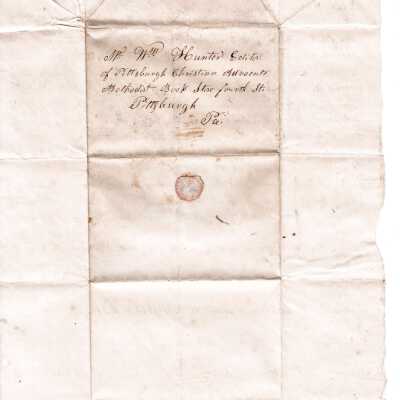 Mr. Wm. Hunter Editor
of Pittsburgh Christian Advocate
Methodist Book Store fourth St.
Pittsburgh
Pa.